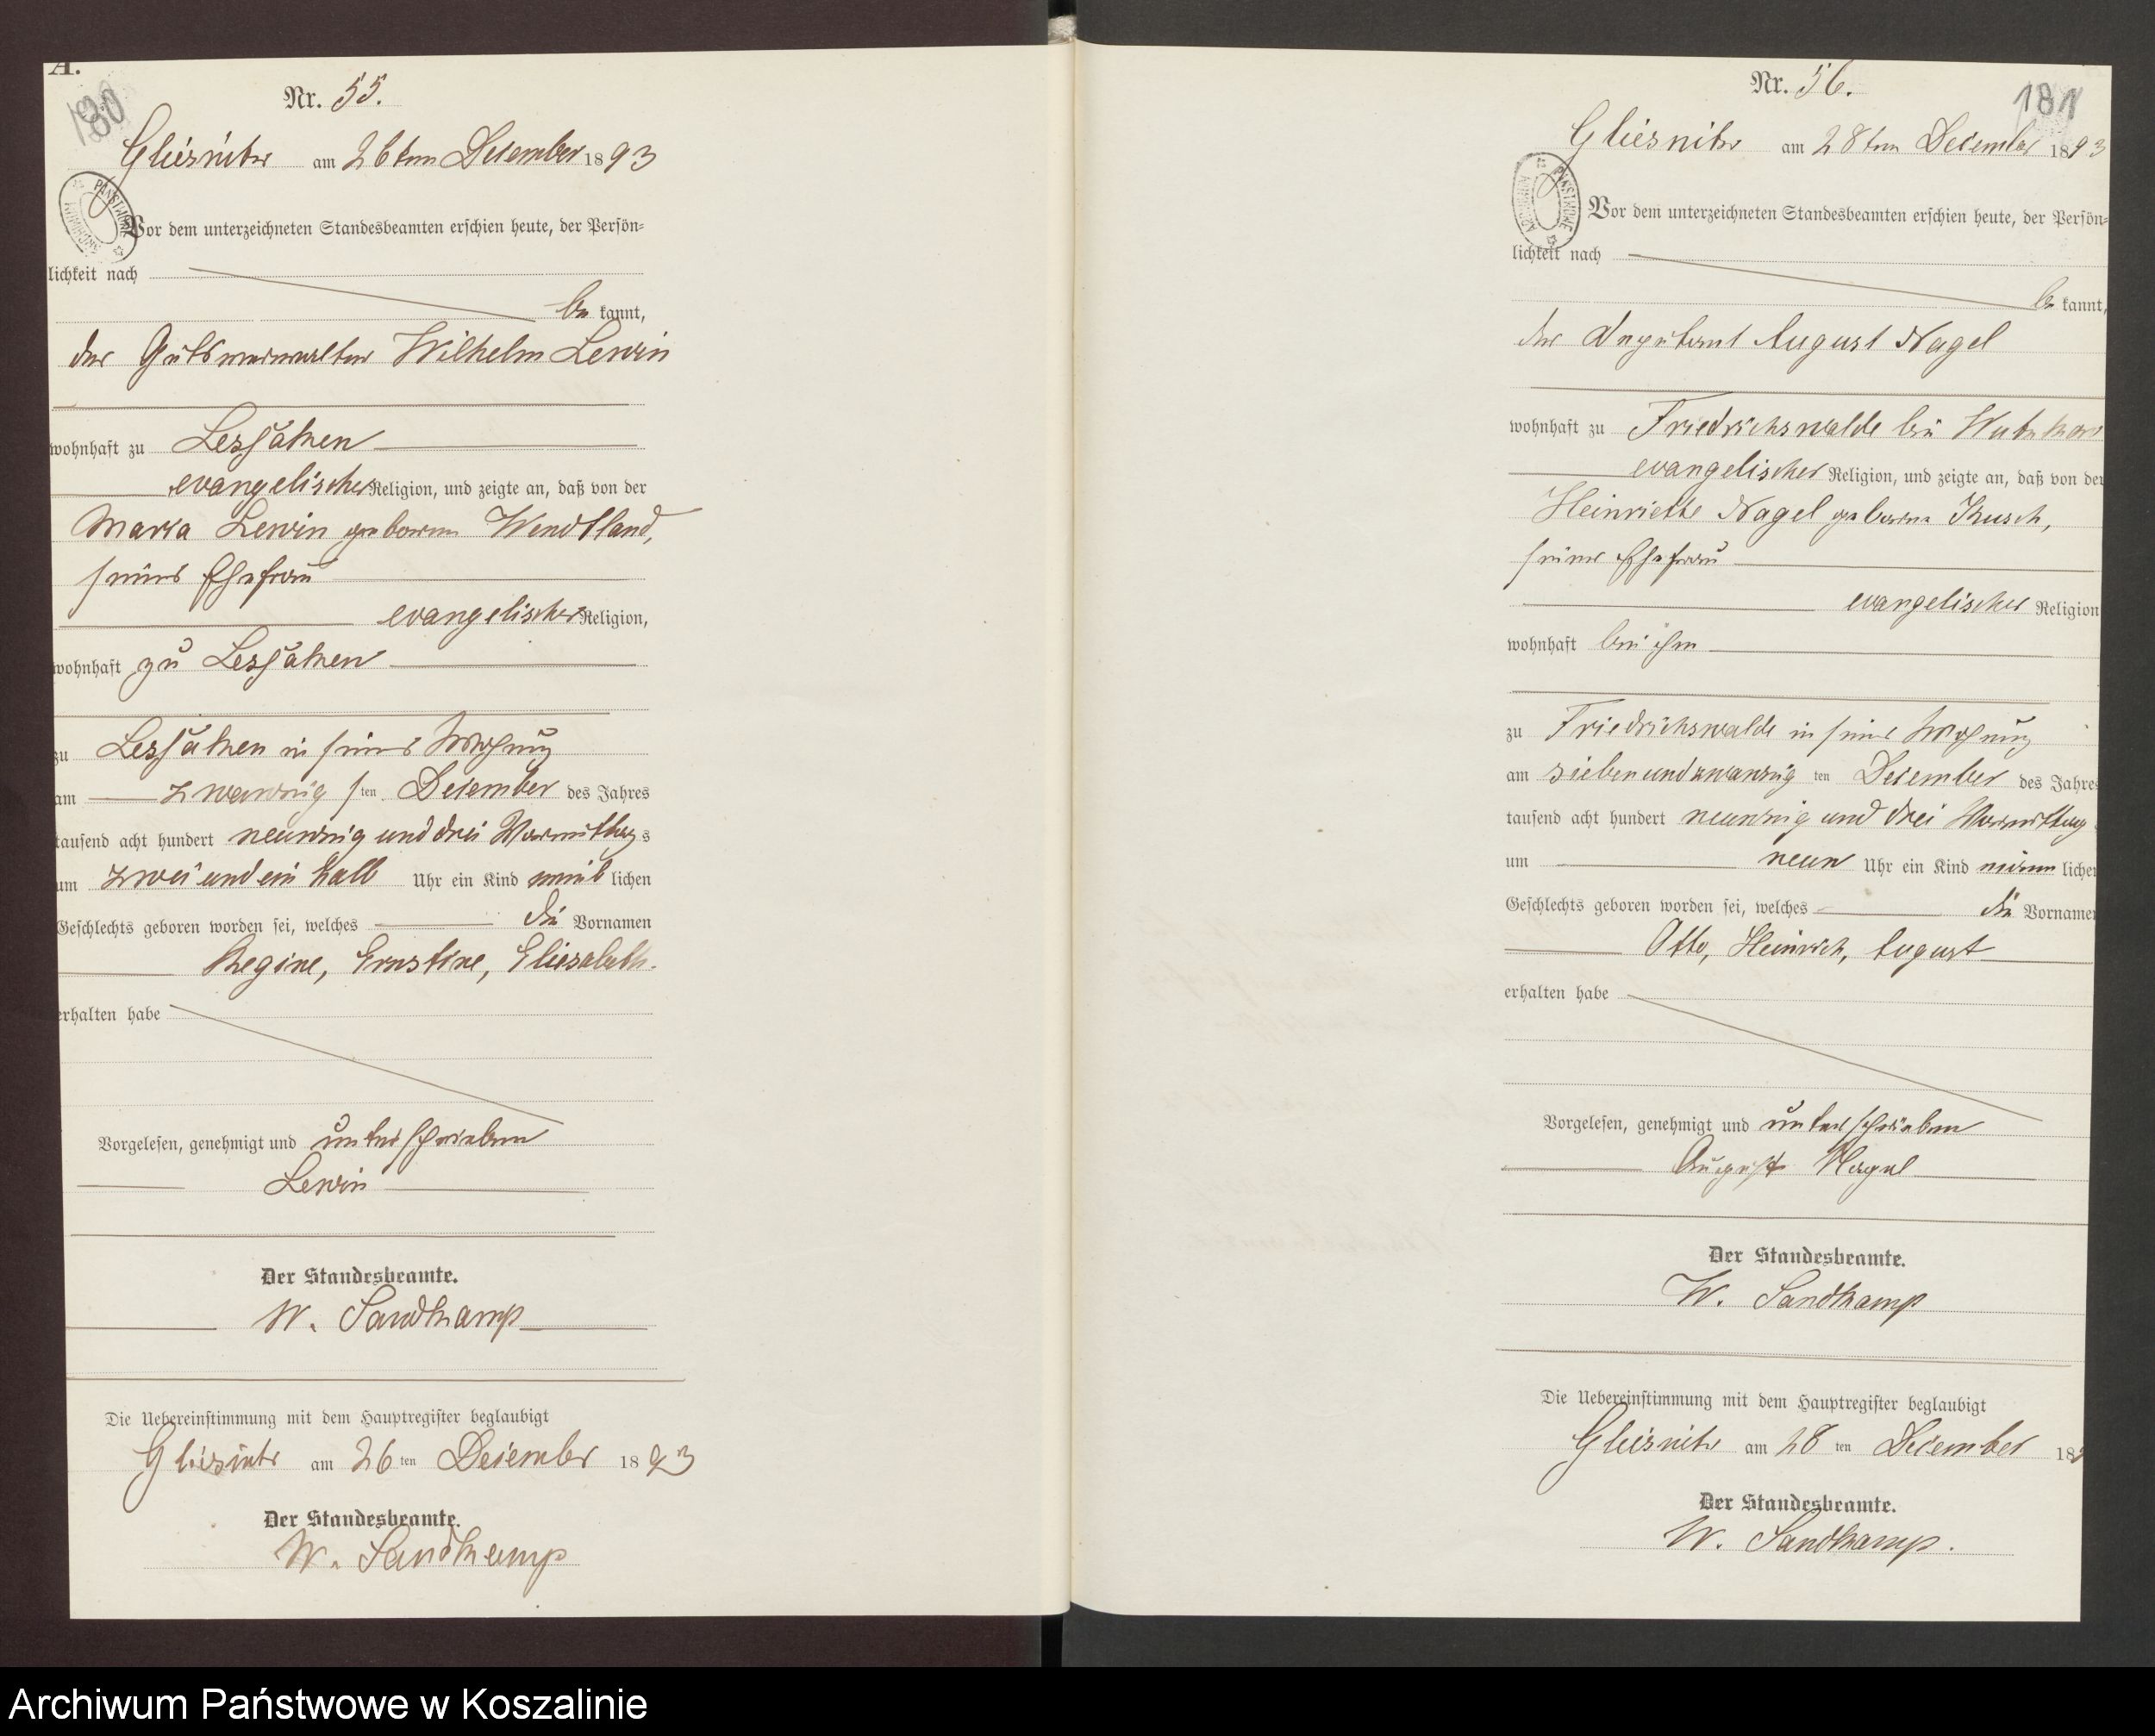 A.
180
Nr. 55.
Gliesnitz am 26ten Dezember 1893
Vor dem unterzeichneten Standesbeamten erschien heute, der Persön-
lichkeit nach
be kannt,
der Gutsverwalter Wilhelm Lewin
wohnhaft zu Lessaken
evangelischer Religion, und zeigte an, daß von der
Maria Lewin geborene Wendtland,
seiner Ehefrau
evangelischer Religion,
wohnhaft zu Lessaken
zu Lessaken in seiner Wohnung
am zwanzig sten Dezember des Jahres
tausend acht hundert neunzig und drei Vormittags
um zwei und ein halb Uhr ein Kind weib lichen
Geschlechts geboren worden sei, welches die Vornamen
Regine, Ernstine, Eliesabeth.
erhalten habe
Vorgelesen, genehmigt und unterschrieben
Lewin
Der Standesbeamte.
W. Sandkamp
Die Uebereinstimmung mit dem Hauptregister beglaubigt
Gliesnitz am 26 ten Dezember 1893
Der Standesbeamte.
W. Sandkamp
181
Nr. 56.
Gliesnitz am 28ten Dezember 1893
ARCHIWUM PAŃSTWOWE
Vor dem unterzeichneten Standesbeamten erschien heute, der Persön-
lichkeit nach
be kannt,
der Deputant August Nagel
wohnhaft zu Friedrichswalde bei
evangelischer Religion, und zeigte an, daß von der
Heinriette Nagel geborne Kusch,
seiner Ehefrau
evangelischer Religion
wohnhaft bei ihm
zu Friedrichswalde in seiner Wohnung
am siebenundzwanzig ten Dezember des Jahres
tausend acht hundert neunzig und drei Vormittag
um neun Uhr ein Kind männ lichen
Geschlechts geboren worden sei, welches die Vornamen
Otto, Heinrich, August
erhalten habe
Vorgelesen, genehmigt und unterschrieben
August Nagel
Der Standesbeamte.
W. Sandkamp
Die Uebereinstimmung mit dem Hauptregister beglaubigt
Gliesnitz am 28 ten Dezember 189
Der Standesbeamte.
W. Sandkamp.
Archiwum Państwowe w Koszalinie